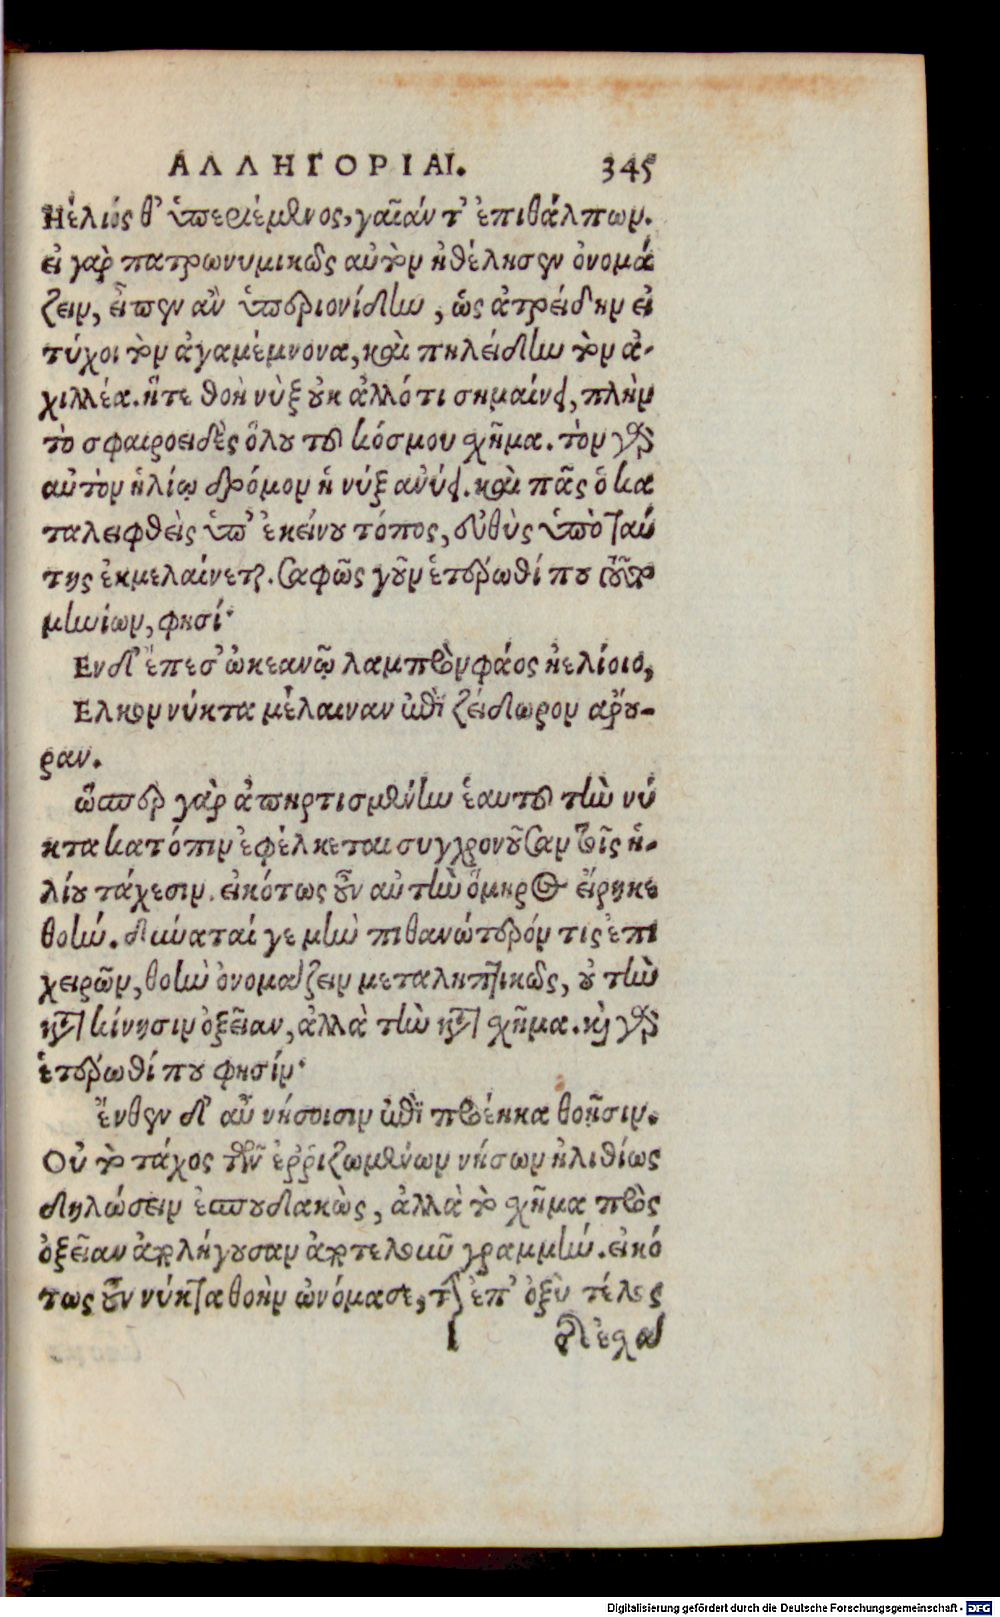 ΑΛΛΗΓΟΡΙΑΙ. 345
Ηέλιός θ' ὑπεριέμενος, γαῖάν τ' ἐπιθάλπων.
εἰ γὰρ πατρωνυμικῶς αὐτὸν ἠθέλησεν ὀνομά
ζειν, εἶπεν ἂν ὑπεριονίδην, ὡς ἀτρείδην εἰ
τύχοι τὸν ἀγαμέμνονα, καὶ πηλείδην τὸν ἀ-
χιλλέα. ἥτε θοὴ νὺξ οὐκ ἀλλότι σημαίνει, πλὴν
τὸ σφαιροειδὲς ὅλου τοῦ κόσμου σχῆμα. τὸν γὰρ
αὐτὸν ἡλίῳ δρόμον ἡ νύξ ἀνύει. καὶ πᾶς ὁ κα
ταλειφθεὶς ὑπ' ἐκείνου τόπος, εὐθὺς ὑπὸ ταύ
της ἐκμελαίνεται. σαφῶς γοῦν ἑτέρωθί που τοῦτο
μηνίων, φησί·
Εν δ' ἔπεσ' ὠκεανῷ λαμπρὸν φάος ἠελίοιο,
Ελκον νύκτα μέλαιναν ἐπὶ ζείδωρον ἄρου-
ραν.
ὥσπερ γὰρ ἀπηρτισμένην ἑαυτοῦ τὴν νύ
κτα κατόπιν ἐφέλκεται συγχρονοῦσαν τοῖς ἡ-
λίου τάχεσιν. εἰκότως οὖν αὐτὴν ὅμηρος εἴρηκε
θοήν. δύναταί γε μὴν πιθανώτερόν τις ἐπι
χειρῶν, θοὴν ὀνομάζειν μεταληπτικῶς, οὐ τὴν
κατὰ κίνησιν ὀξεῖαν, ἀλλὰ τὴν κατὰ σχῆμα. καὶ γὰρ
ἑτέρωθί που φησίν·
ἔνθεν δ' αὖ νήσοισιν ἐπὶ προέηκα θοῇσιν.
Οὐ τὸ τάχος τῶν ἐῤῥιζωμένων νήσων ἠλιθίως
δηλώσειν ἐσπουδακὼς, ἀλλὰ τὸ σχῆμα πρὸς
ὀξεῖαν ἀπολήγουσαν ἀποτελουμ γραμμήν. εἰκό
τως οὖν νύκτα θοὴν ὠνόμασε, τὴν ἐπ' ὀξὺ τέλος
l ἔσχα
Digitalisierung gefördert durch die Deutsche Forschungsgemeinschaft - DFG